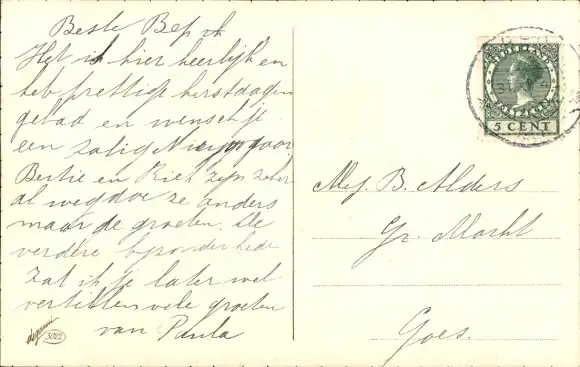 Beste Bep ik
Het is hier heerlijk en
heb prettige kerstdagen
gehad en wensch je
een zalig Nieuwjaar
Bertie en Riet zijn zeker
al weg doe ze anders
maar de groeten. De
verdere bijzonderhede
zal ik je later wel
vertellen vele groeten
van Paula
degami
3022
NEDERLAND
5 CENT
Mej. B. Alders
Gr. Markt
Goes.